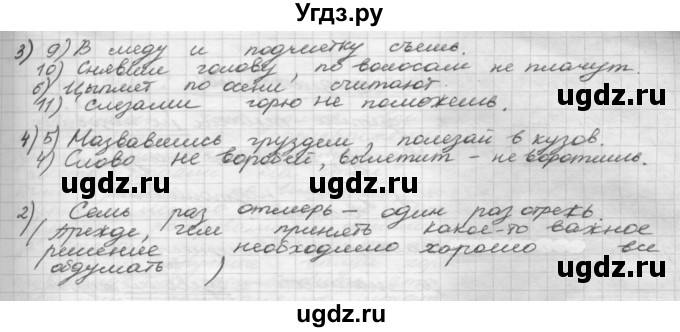 Угдз.ру
3) 9) В меду и подметку съешь.
10) Снявши голову, по волосам не плачут.
6) Цыплят по осени считают.
11) Слезами горю не поможешь.
4) 5) Назвавшись груздем, полезай в кузов.
4) Слово не воробей, вылетит – не воротишь.
2) Семь раз отмерь – один раз отрежь.
(Прежде, чем принять какое-то важное
решение необходимо хорошо все
обдумать)
ugdz.ru ugdz.ru ugdz.ru
ugdz.ru ugdz.ru ugdz.ru
ugdz.ru ugdz.ru ugdz.ru
ugdz.ru ugdz.ru ugdz.ru